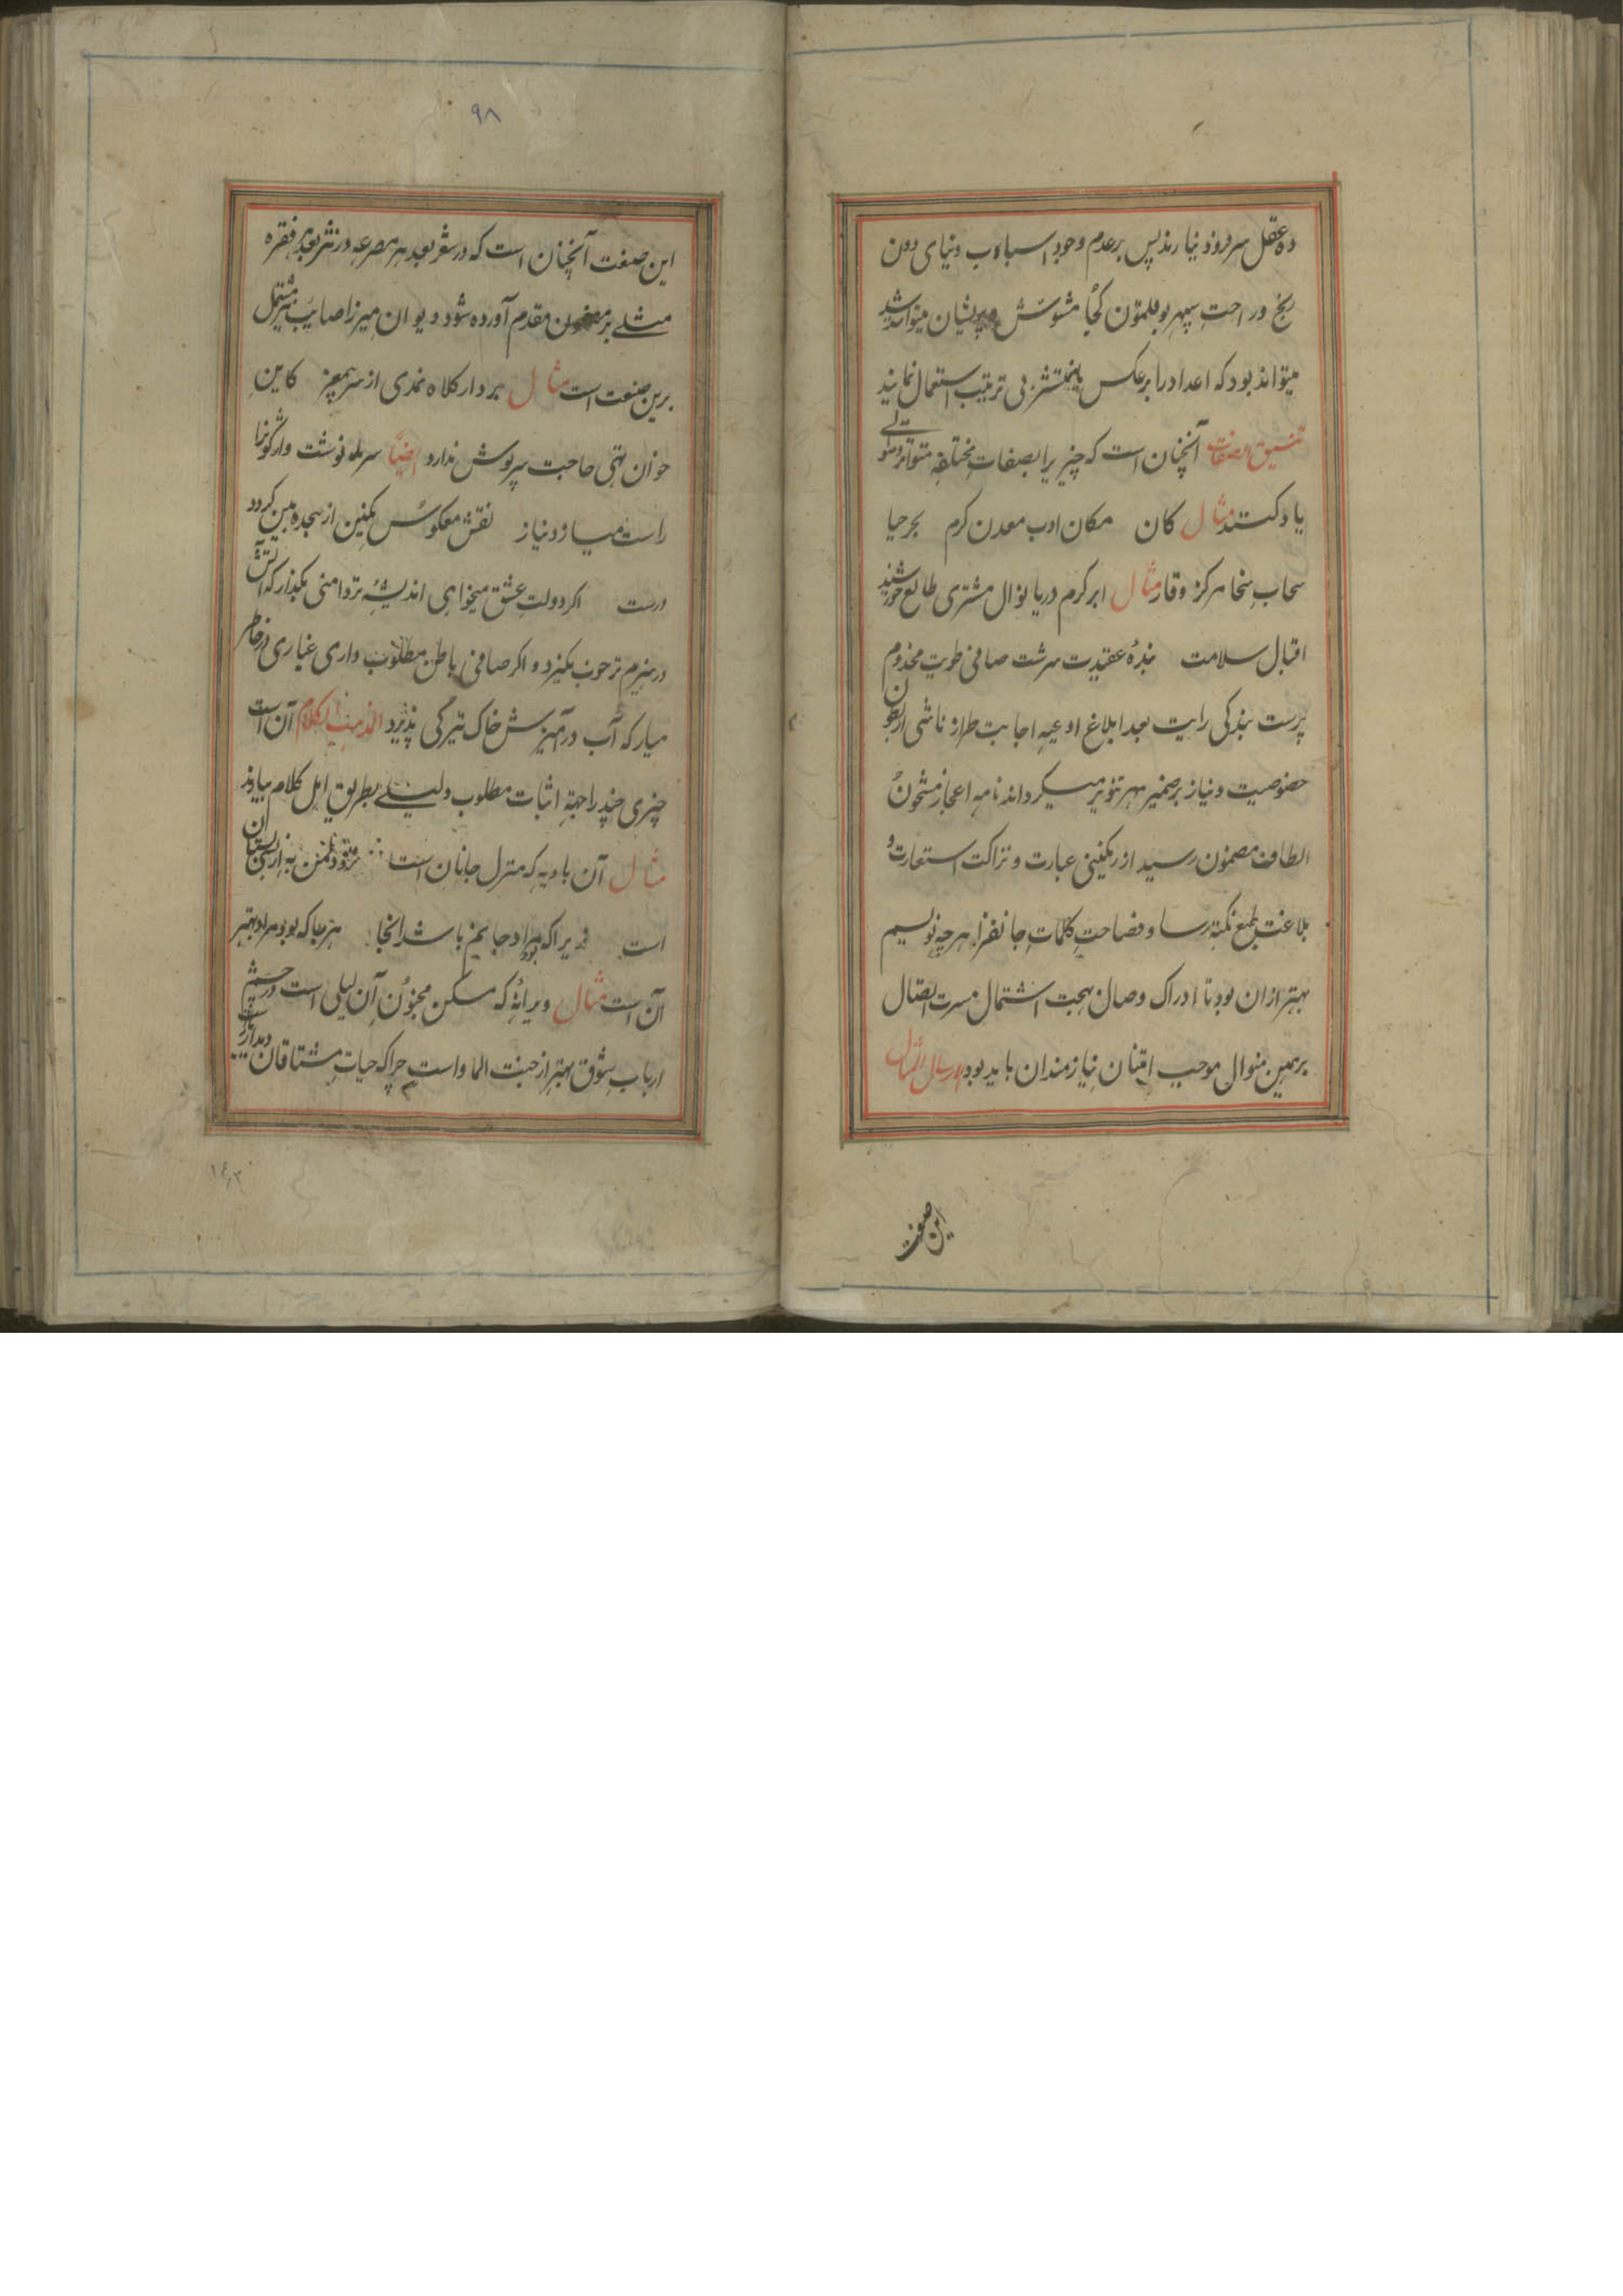 ده عقل سر فرود نیارند پس بر عدم وجود اسباب دنیای دون
رنج و راحت سپهر بوقلمون کجا مشوش و پریشان میتواند شد
میتواند بود که اعداد را بر عکس یا منتشر بی ترتیب استعمال نمایند
تنسیق الصفات آنچنان است که چیزیرا بصفات مختلفه متواتر و متوالی
یاد کنند مثال کان مکان ادب معدن کرم بحر حیا
سحاب سخا مرکز وقار مثال ابر کرم دریا نوال مشتری طالع خورشید
اقبال سلامت بندۀ عقیدت سرشت صافی طویت مخدوم
پرست بندکی رایت بعد ابلاغ ادعیه اجابت طراز ناشی از بطون
خصوصیت و نیاز بر ضمیر مهر تنویر میکرداند نامه اعجاز مشحون
الطاف مضمون رسید از رنکینی عبارت و نزاکت استعارت و
بلاغت طبع نکته رسا و فصاحت کلمات جانفزا هر چه نویسم
بهتر از آن بود تا ادراک وصال بهجت اشتمال مسرت اتصال
برهمین منوال موجب امتنان نیازمندان باید بود ارسال المثل
این صنعت
۹۸
این صنعت آنچنان است که در شعر بعد هر مصرعه و در نثر بعد هر فقره
مثلے بر مضمون مقدم آورده شود دیوان میرزا صایب مشتمل
برین صنعت است مثال بردار کلاه نمدی از سر بیمغز کاین
خوان تهی حاجت سرپوش ندارد ایضاً سرنوشت واژکونرا
راست میسازد نیاز نقش معکوس نکین از سجده میکردد
درست اکر دولت عشق میخواهی اندیشه تر دامنی بکذار که آتش
در هیزم تر خوب نکیرد و اکر صافی باطن مطلوب داری غباری در خاطر
میار که آب در آمیزش خاک تیرکی پذیرد المذهب الکلام آن است
چیزی چند را جهة اثبات مطلوب دلیلے بطریق اهل کلام بیاورند
مثال آن بادیه که منزل جانان است نزد من به از بستان
است زیرا که مراد جانم باشد آنجا هر جا که بود مراد بهتر
آن است مثال ویرانۀ که مسکن مجنون آن لیلی است در چشم
ارباب شوق بهتر از جنت الماوا است چرا که حیات مشتاقان دیدار